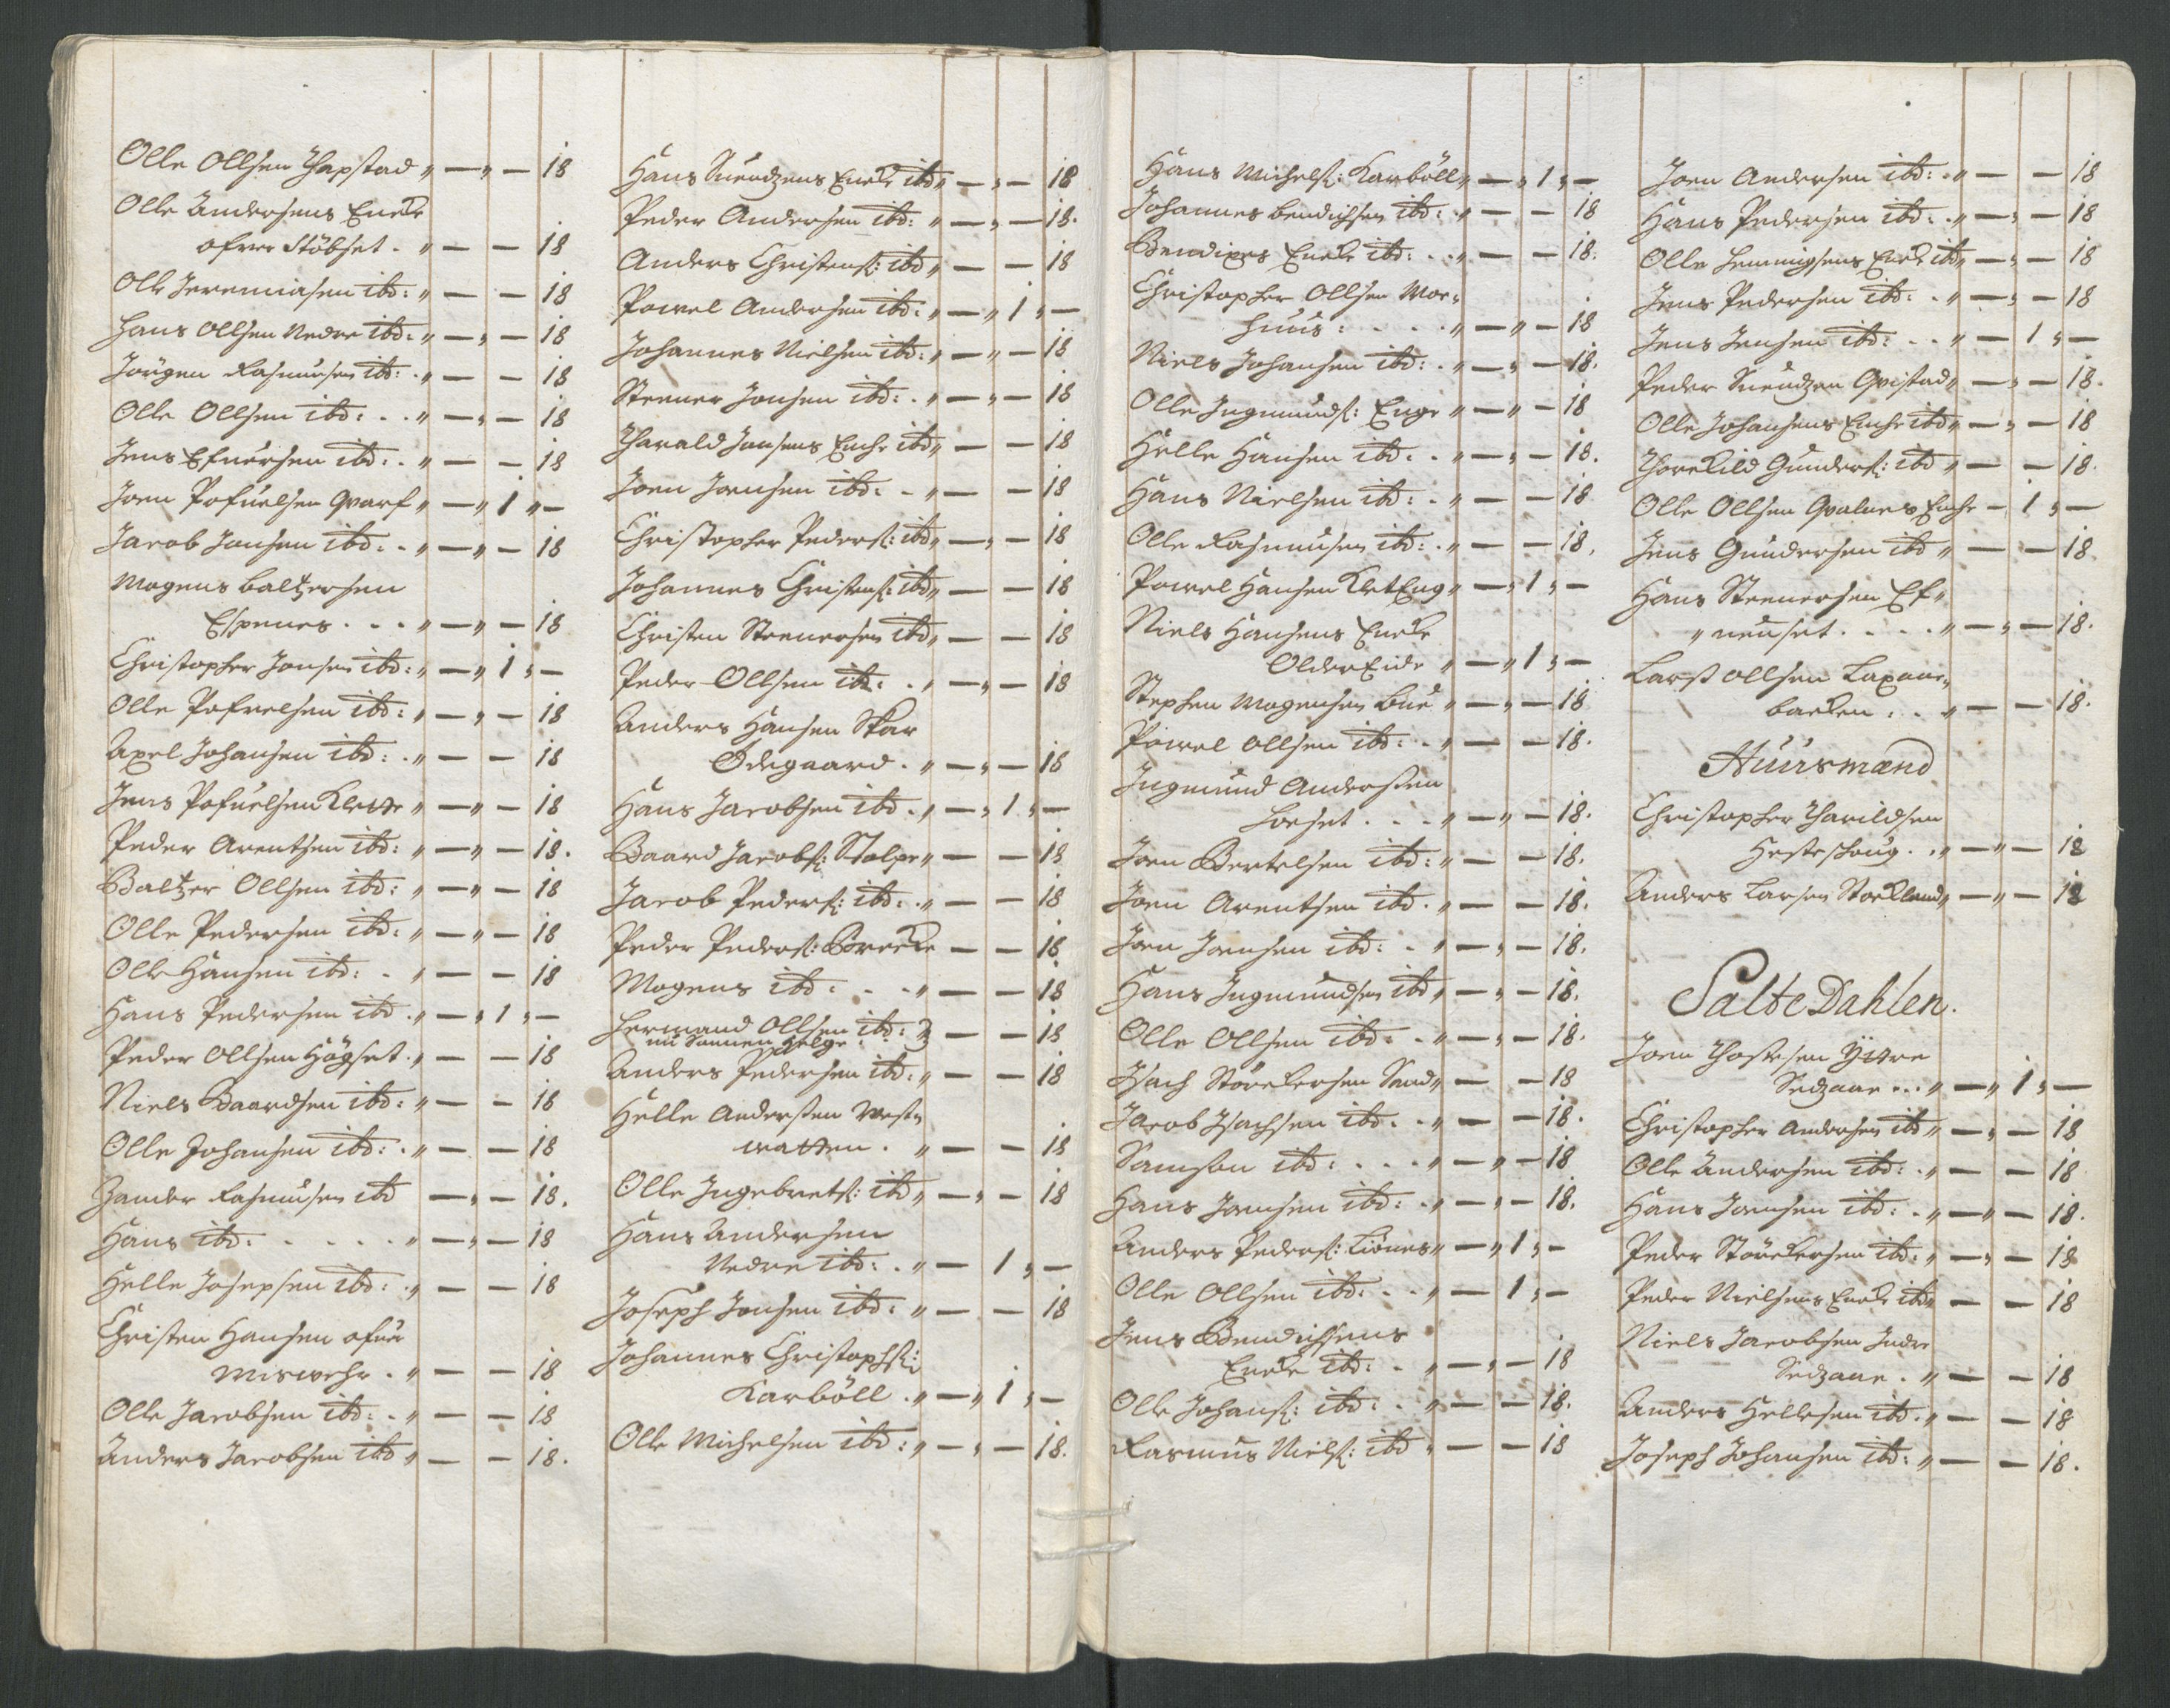 Olle Ollsen Thapstad „ — „ — 18
Olle Andersens Encke
ofver Stöbset . „ — — 18
Olle Jeremiasen ibd: „ — — 18
Hans Ollsen Nedre ibd: „ — „ — 18
Jörgen Rasmusen ibd: . „ — — 18
Olle Ollsen ibd: . . „ — „ — 18
Jens Efuersen ibd: . „ — — 18
Joen Pofuelsen Qvarf „ — „ 1 „ —
Jacob Jonsen ibd: . „ — „ — 18
Mogens Baltzersen
Espenes . . . „ — „ — 18
Christopher Jonsen ibd: „ — „ 1 „ —
Olle Pofvelsen ibd: „ — „ — 18
Axel Johansen ibd: . „ — — 18
Jens Pofuelsen Klette „ — „ — 18
Peder Arentsen ibd: „ — „ — 18.
Baltzer Ollsen ibd: „ — „ — 18
Olle Pedersen ibd: „ — „ — 18
Olle Hansen ibd: . „ — — 18
Hans Pedersen ibd . „ — „ 1 „ —
Peder Ollsen Högset . „ — — 18
Niels Baardsen ibd: „ — — 18
Olle Johansen ibd: . „ — — 18
Zander Rasmusen ibd — „ — 18.
Hans ibd: . . . . . „ — „ — 18
Helle Josepsen ibd: . „ — — 18
Christen Hansen ofuer
Miswehr . „ — — 18
Olle Jacobsen ibd: . „ — — 18
Anders Jacobsen ibd „ — — 18.
Hans Suendzens Encke ibd „ — „ — 18
Peder Andersen ibd: „ — „ — 18.
Anders Christens: ibd „ — — 18
Powel Andersen ibd: „ — „ 1 „ —
Johannes Nielsen ibd: „ — „ — 18
Steener Jonsen ibd: . „ — „ — 18
Tharald Jonsens Enche ibd „ — — 18
Joen Joensen ibd: . „ — — 18
Christopher Peders: ibd „ — „ — 18
Johannes Christens: ibd „ — — 18
Christen Steenersen ibd „ — — 18
Peder Ollsen ibd: . „ — „ — 18
Anders Hansen Skar
Ödegaard . „ — „ — 18
Hans Jacobsen ibd . „ — „ 1 „ —
Baard Jacobs: Stolpe „ — — 18
Jacob Peders: ibd: . „ — — 18
Peder Peders: Brecke — — 18
Mogens ibd: . . „ — — 18
Hermand Ollsen ibd: — — 18
nu Sönnen Helge
Anders Pedersen ibd: „ — — 18
Helle Andersen West„
watten . „ — — 18
Olle Ingebrets: ibd „ — „ — 18
Hans Andersen
Nedre ibd: . „ — 1 „ —
Joseph Jonsen ibd: „ — — 18
Johannes Christophs:
Karböll . „ — „ 1 „ —
Olle Michelsen ibd: „ — „ — 18.
Hans Michels: Karböll „ — „ 1 „ —
Johannes Bendichsen ibd: „ — — 18
Bendixes Encke ibd: . . „ — — 18.
Christopher Ollsen Mor„
huus: . . . . „ — „ — 18
Niels Johansen ibd: . „ — „ — 18.
Olle Ingmunds: Enge „ — „ — 18
Helle Hansen ibd: . „ — „ — 18.
Hans Nielsen ibd: . „ — — 18
Olle Rasmusen ibd: . „ — — 18.
Powel Hansen KletEng „ — „ 1 „ —
Niels Hansens Encke
OlderEide „ — „ 1 „ —
Stephen Mogensen Bue „ — „ — 18
Powel Ollsen ibd: . „ — — 18.
Ingmund Andersen
Loeset . . . „ — „ — 18.
Joen Bertelsen ibd: „ — — 18.
Joen Arentsen ibd . „ — — 18.
Joen Joensen ibd: . „ — „ — 18.
Hans Ingmundsen ibd „ — „ — 18.
Olle Ollsen ibd: . „ — „ — 18.
Isach Störckersen Sand „ — — 18
Jacob Isachsen ibd . . „ — — 18.
Samson ibd: . . . „ — „ — 18
Hans Joensen ibd: . „ — „ — 18.
Anders Peders: Liönes „ — „ 1 „ —
Olle Ollsen ibd: . . „ — 1 „ —
Jens Bendichsens
Encke ibd: . „ — „ — 18
Olle Johans: ibd: . „ — — 18.
Rasmus Niels: ibd „ — — 18
Joen Andersen ibd: . „ — — 18
Hans Pedersen ibd: . „ — „ — 18
Olle Hemmigsens Encke ibd „ — „ — 18
Jens Pedersen ibd: . „ — „ — 18
Jens Jensen ibd: . . „ — 1 „ —
Peder Suendzen Qvistad „ — „ — 18.
Olle Johansens Enche ibd „ — „ — 18
Thorckild Gunders: ibd „ — — 18.
Olle Ollsen Qvalnes Enche — 1 „ —
Jens Gundersen ibd „ — — 18
Hans Steenersen Ef„
„neuset . . . . „ — „ — 18.
Larss Ollsen Laxaae„
backen: . . „ — — 18.
Huusmænd
Christopher Tharildsen
Hesteschoug . . „ — „ — 18
Anders Larsen Storckland „ — „ — 18
Salte Dahlen.
Joen Thostesen Yttre
Sedzaae . . . „ — „ 1 „ —
Christopher Andersen ibd „ — „ — 18
Olle Andersen ibd: . „ — — 18
Hans Joensen ibd: . „ — „ — 18.
Peder Störckersen ibd: „ — „ — 18
Peder Nielsens Encke ibd „ — — 18
Niels Jacobsen Indre
Sedzaae . „ — — 18
Anders Hellesen ibd . „ — — 18
Joseph Johansen ibd: „ — — 18.